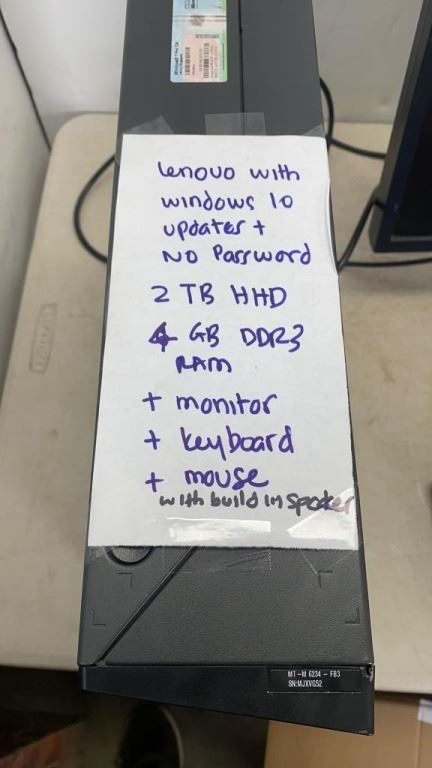 Lenovo with
windows 10
updates +
NO Password
2 TB HHD
4 GB DDR3
RAM
+ monitor
+ keyboard
+ mouse
with build in speaker
MT-M 6234 - FB3
SN:MJXVG52